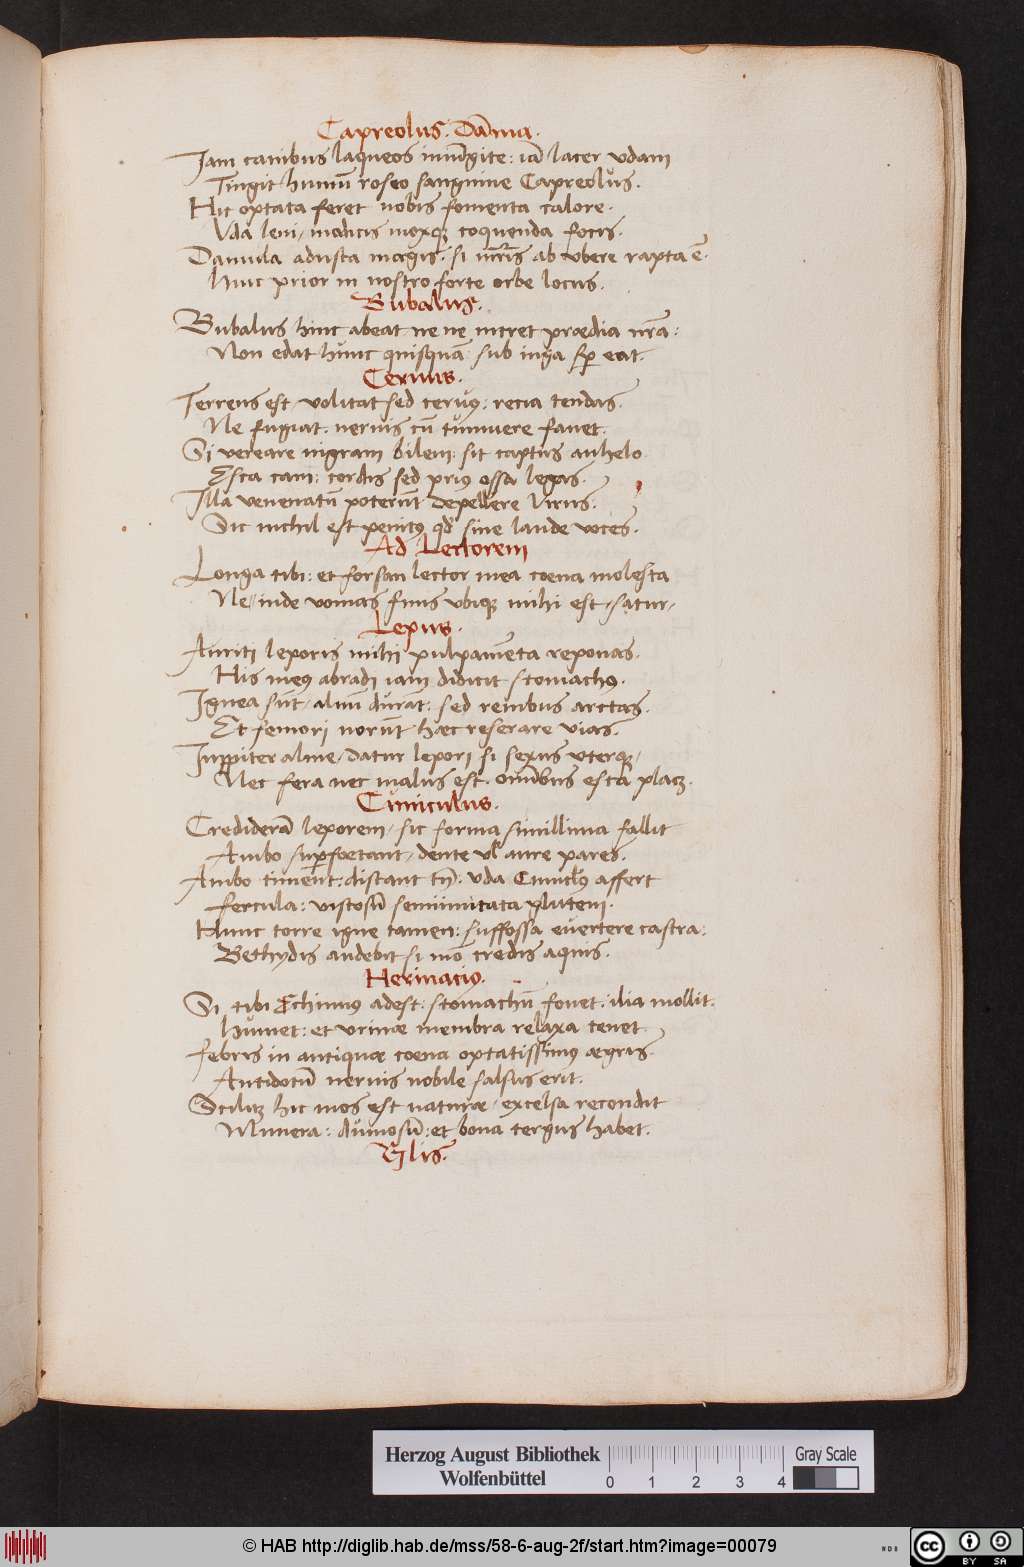 Capreolus. Dāma.
Jam canibus laqueos iniūgite: iā lacer vdam
Tingit humū roseo sanguine Capreolus.
Hic optata feret nobis fomenta calore.
Vda leni, madicis moxq; coquenda focis.
Damula adusta magis. si mr̄is ab vbere rapta ē.
Huic prior in nostro forte orbe locus.
Bubalus.
Bubalus hinc abeat ne ne incret prædia nr̄a:
Non edat hunc quisquā sub iuga sp̄ eat.
Ceruus.
Terrens est, volitat sed ceruꝰ: recia tendas.
Ne fugiat. neruis cū tumuere fauet.
Si vereare nigram bilem: sit captus anhelo
Esca cani: cordis sed priꝰ ossa legas.
Illa venenatū poterūt depellere virus.
Sic nichil est penitꝰ qđ sine laude voces.
Ad Lectorem
Longa tibi: et forsan lector mea coena molesta
Ne inde vomas finis vbiq; mihi est, satur,
Lepus.
Auriti leporis mihi pulpamēta reponas.
His meꝰ abradi iam didicit stomachꝰ.
Ignea sūt, aluū durāt: sed renibus arctas.
Et femori norūt hæc reserare vias.
Iuppiter alme, datur lepori si sexus vterq;,
Nec fera nec malus est. omībus esca placz.
Cuniculus.
Crediderā leporem, sic forma simillima fallit
Ambo sup̄foetant, dente vl' aure pares.
Ambo timent: distant tn̄. vda Cunicl'ꝰ affert
fercula: viscosū semiimitata gluteni.
Hunc torre igne tamen: suffossa euertere castra:
Bethydis audebit si mō credis aquis.
Herinaciꝰ.
Si tibi Echinnꝰ adest: stomachū fouet. ilia mollit:
humet: et vrinæ membra relaxa tenet.
febris in antiquæ coena optatissimꝰ ægris.
Antidotū neruis nobile salsus erit.
Scilitz hic mos est naturæ, excelsa recondit
Munera: dumosū: et bona tergus habet.
Glis.
Herzog August Bibliothek
Wolfenbüttel
0 1 2 3 4
Gray Scale
© HAB http://diglib.hab.de/mss/58-6-aug-2f/start.htm?image=00079
WDB
cc BY SA